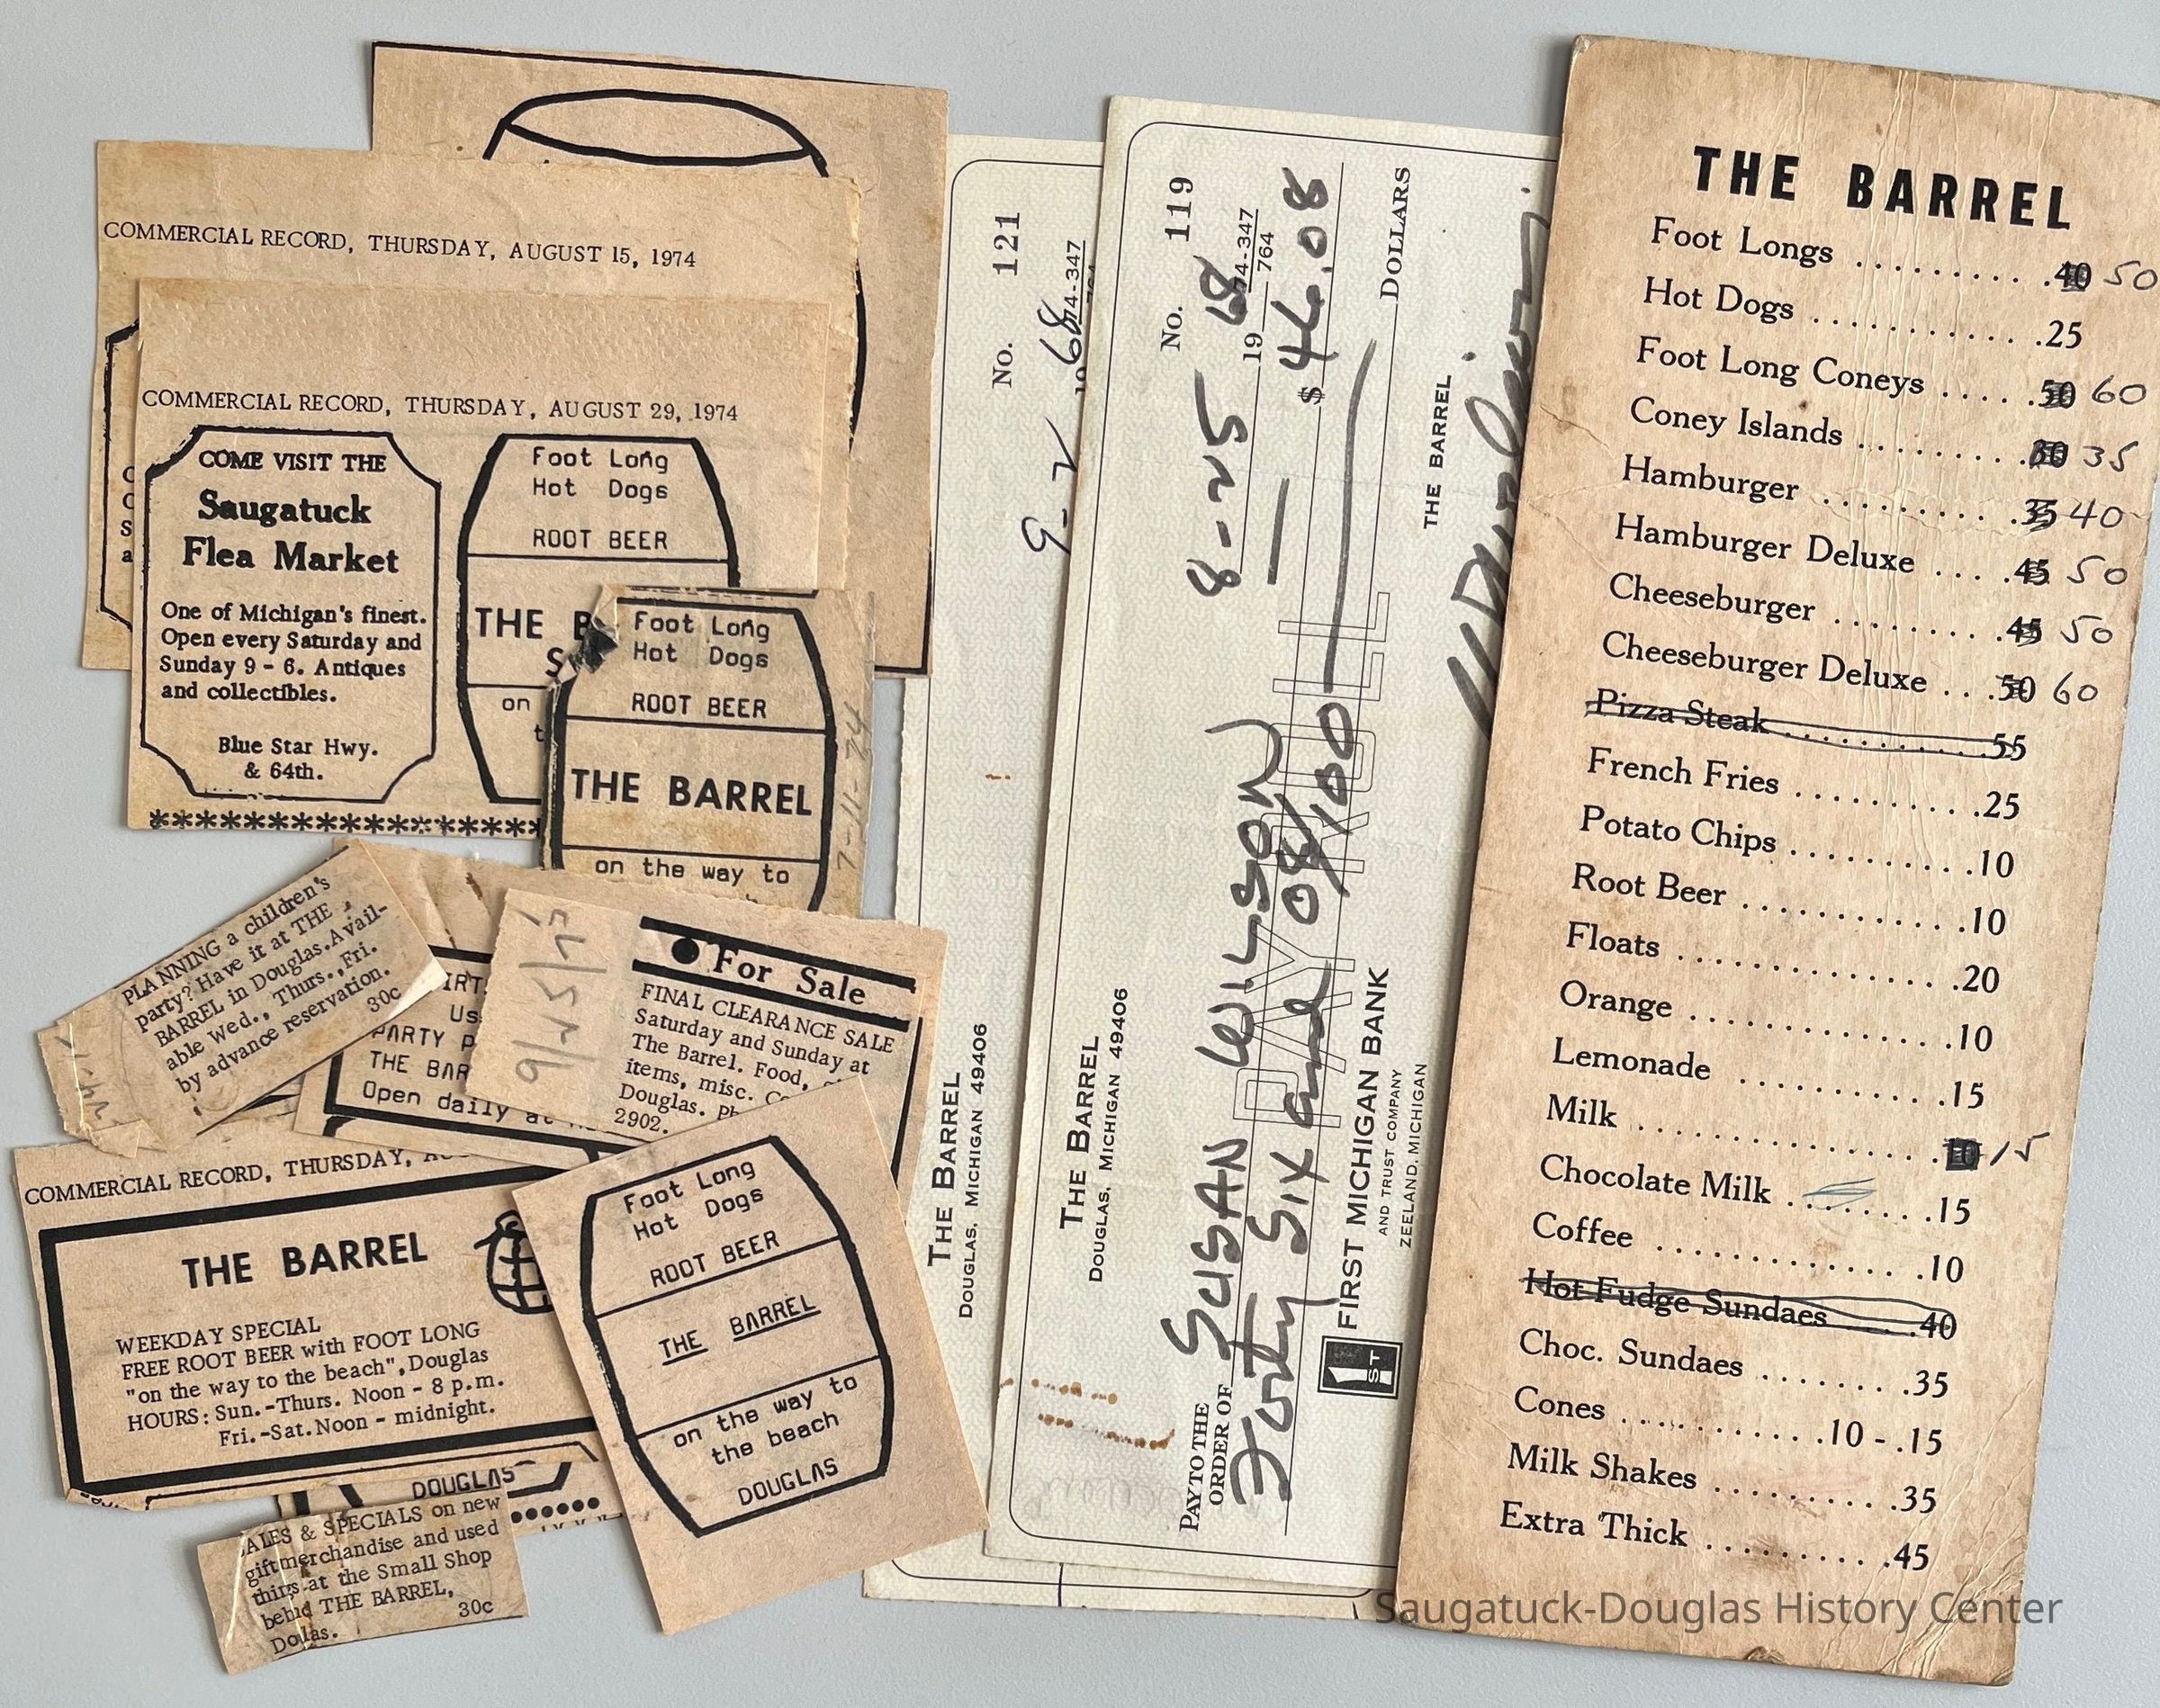 COMMERCIAL RECORD, THURSDAY, AUGUST 15, 1974
COMMERCIAL RECORD, THURSDAY, AUGUST 29, 1974
COME VISIT THE
Saugatuck
Flea Market
One of Michigan's finest.
Open every Saturday and
Sunday 9 - 6. Antiques
and collectibles.
Blue Star Hwy.
& 64th.
*****************
Foot Long
Hot Dogs
ROOT BEER
THE B
on
Foot Long
Hot Dogs
ROOT BEER
THE BARREL
on the way to
7-11-74
PLANNING a children's
party? Have it at THE
BARREL in Douglas. Avail-
able Wed., Thurs., Fri.
by advance reservation.
30c
IRT
Us
PARTY P
THE BAR
Open daily at
9/25/75
For Sale
FINAL CLEARANCE SALE
Saturday and Sunday at
The Barrel. Food,
items, misc. C
Douglas. Ph
2902.
COMMERCIAL RECORD, THURSDAY,
THE BARREL
WEEKDAY SPECIAL
FREE ROOT BEER with FOOT LONG
"on the way to the beach", Douglas
HOURS: Sun.-Thurs. Noon - 8 p.m.
Fri.-Sat. Noon - midnight.
DOUGLAS
Foot Long
Hot Dogs
ROOT BEER
THE BARREL
on the way to
the beach
DOUGLAS
ALES & SPECIALS on new
gift merchandise and used
things at the Small Shop
behid THE BARREL,
Dolas.
30c
THE BARREL
DOUGLAS, MICHIGAN 49406
No. 121
74-347
9-2 1968
THE BARREL
DOUGLAS, MICHIGAN 49406
No. 119
74-347
764
8-25 1968
PAY TO THE
ORDER OF SUSAN WILSON $46.08
Forty Six and 08/100 DOLLARS
PAYROLL
1ST
FIRST MICHIGAN BANK
AND TRUST COMPANY
ZEELAND, MICHIGAN
THE BARREL
THE BARREL
Foot Longs .40 50
Hot Dogs .25
Foot Long Coneys .50 60
Coney Islands .30 35
Hamburger .35 40
Hamburger Deluxe .45 50
Cheeseburger .45 50
Cheeseburger Deluxe .50 60
Pizza Steak .55
French Fries .25
Potato Chips .10
Root Beer .10
Floats .20
Orange .10
Lemonade .15
Milk .10 15
Chocolate Milk .15
Coffee .10
Hot Fudge Sundaes .40
Choc. Sundaes .35
Cones .10 - .15
Milk Shakes .35
Extra Thick .45
Saugatuck-Douglas History Center